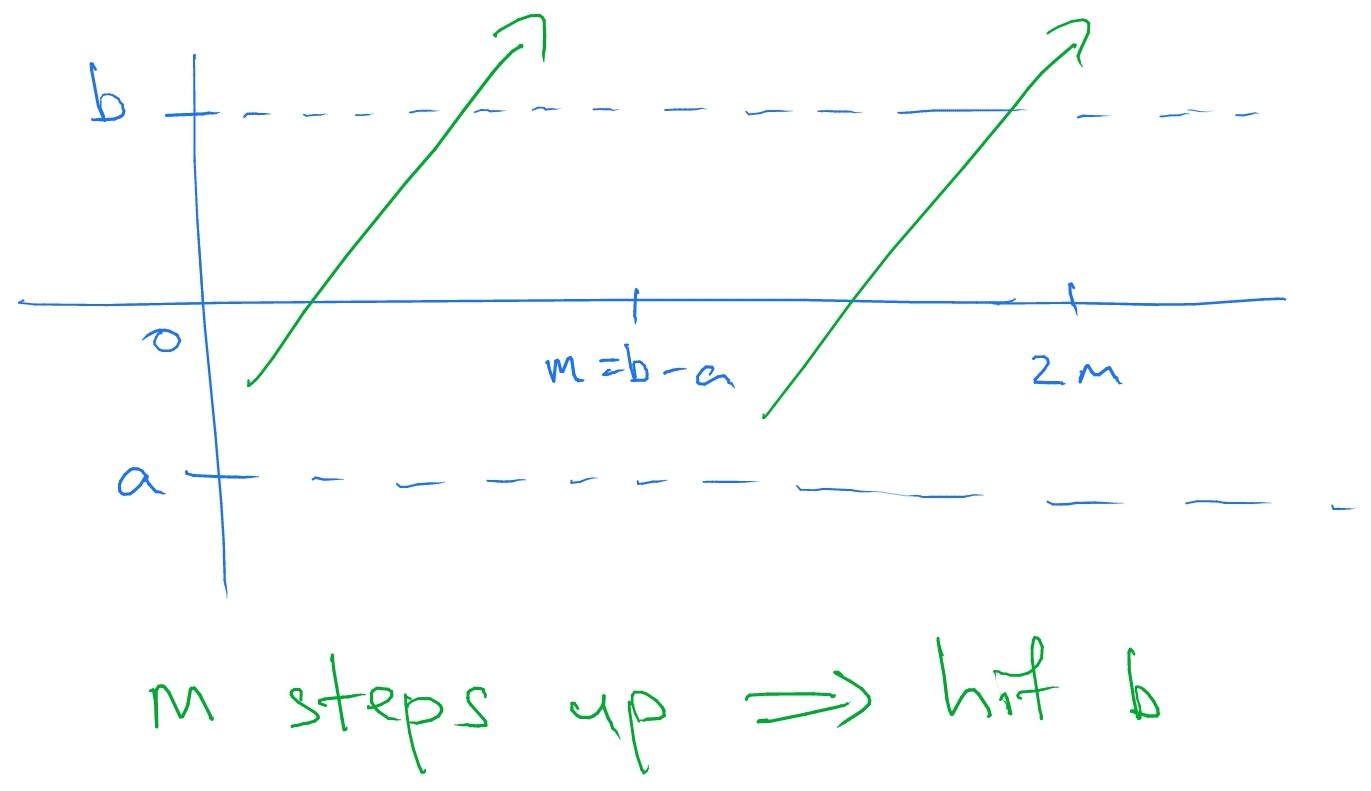 b
0
m = b - a
2m
a
m steps up ⟹ hit b